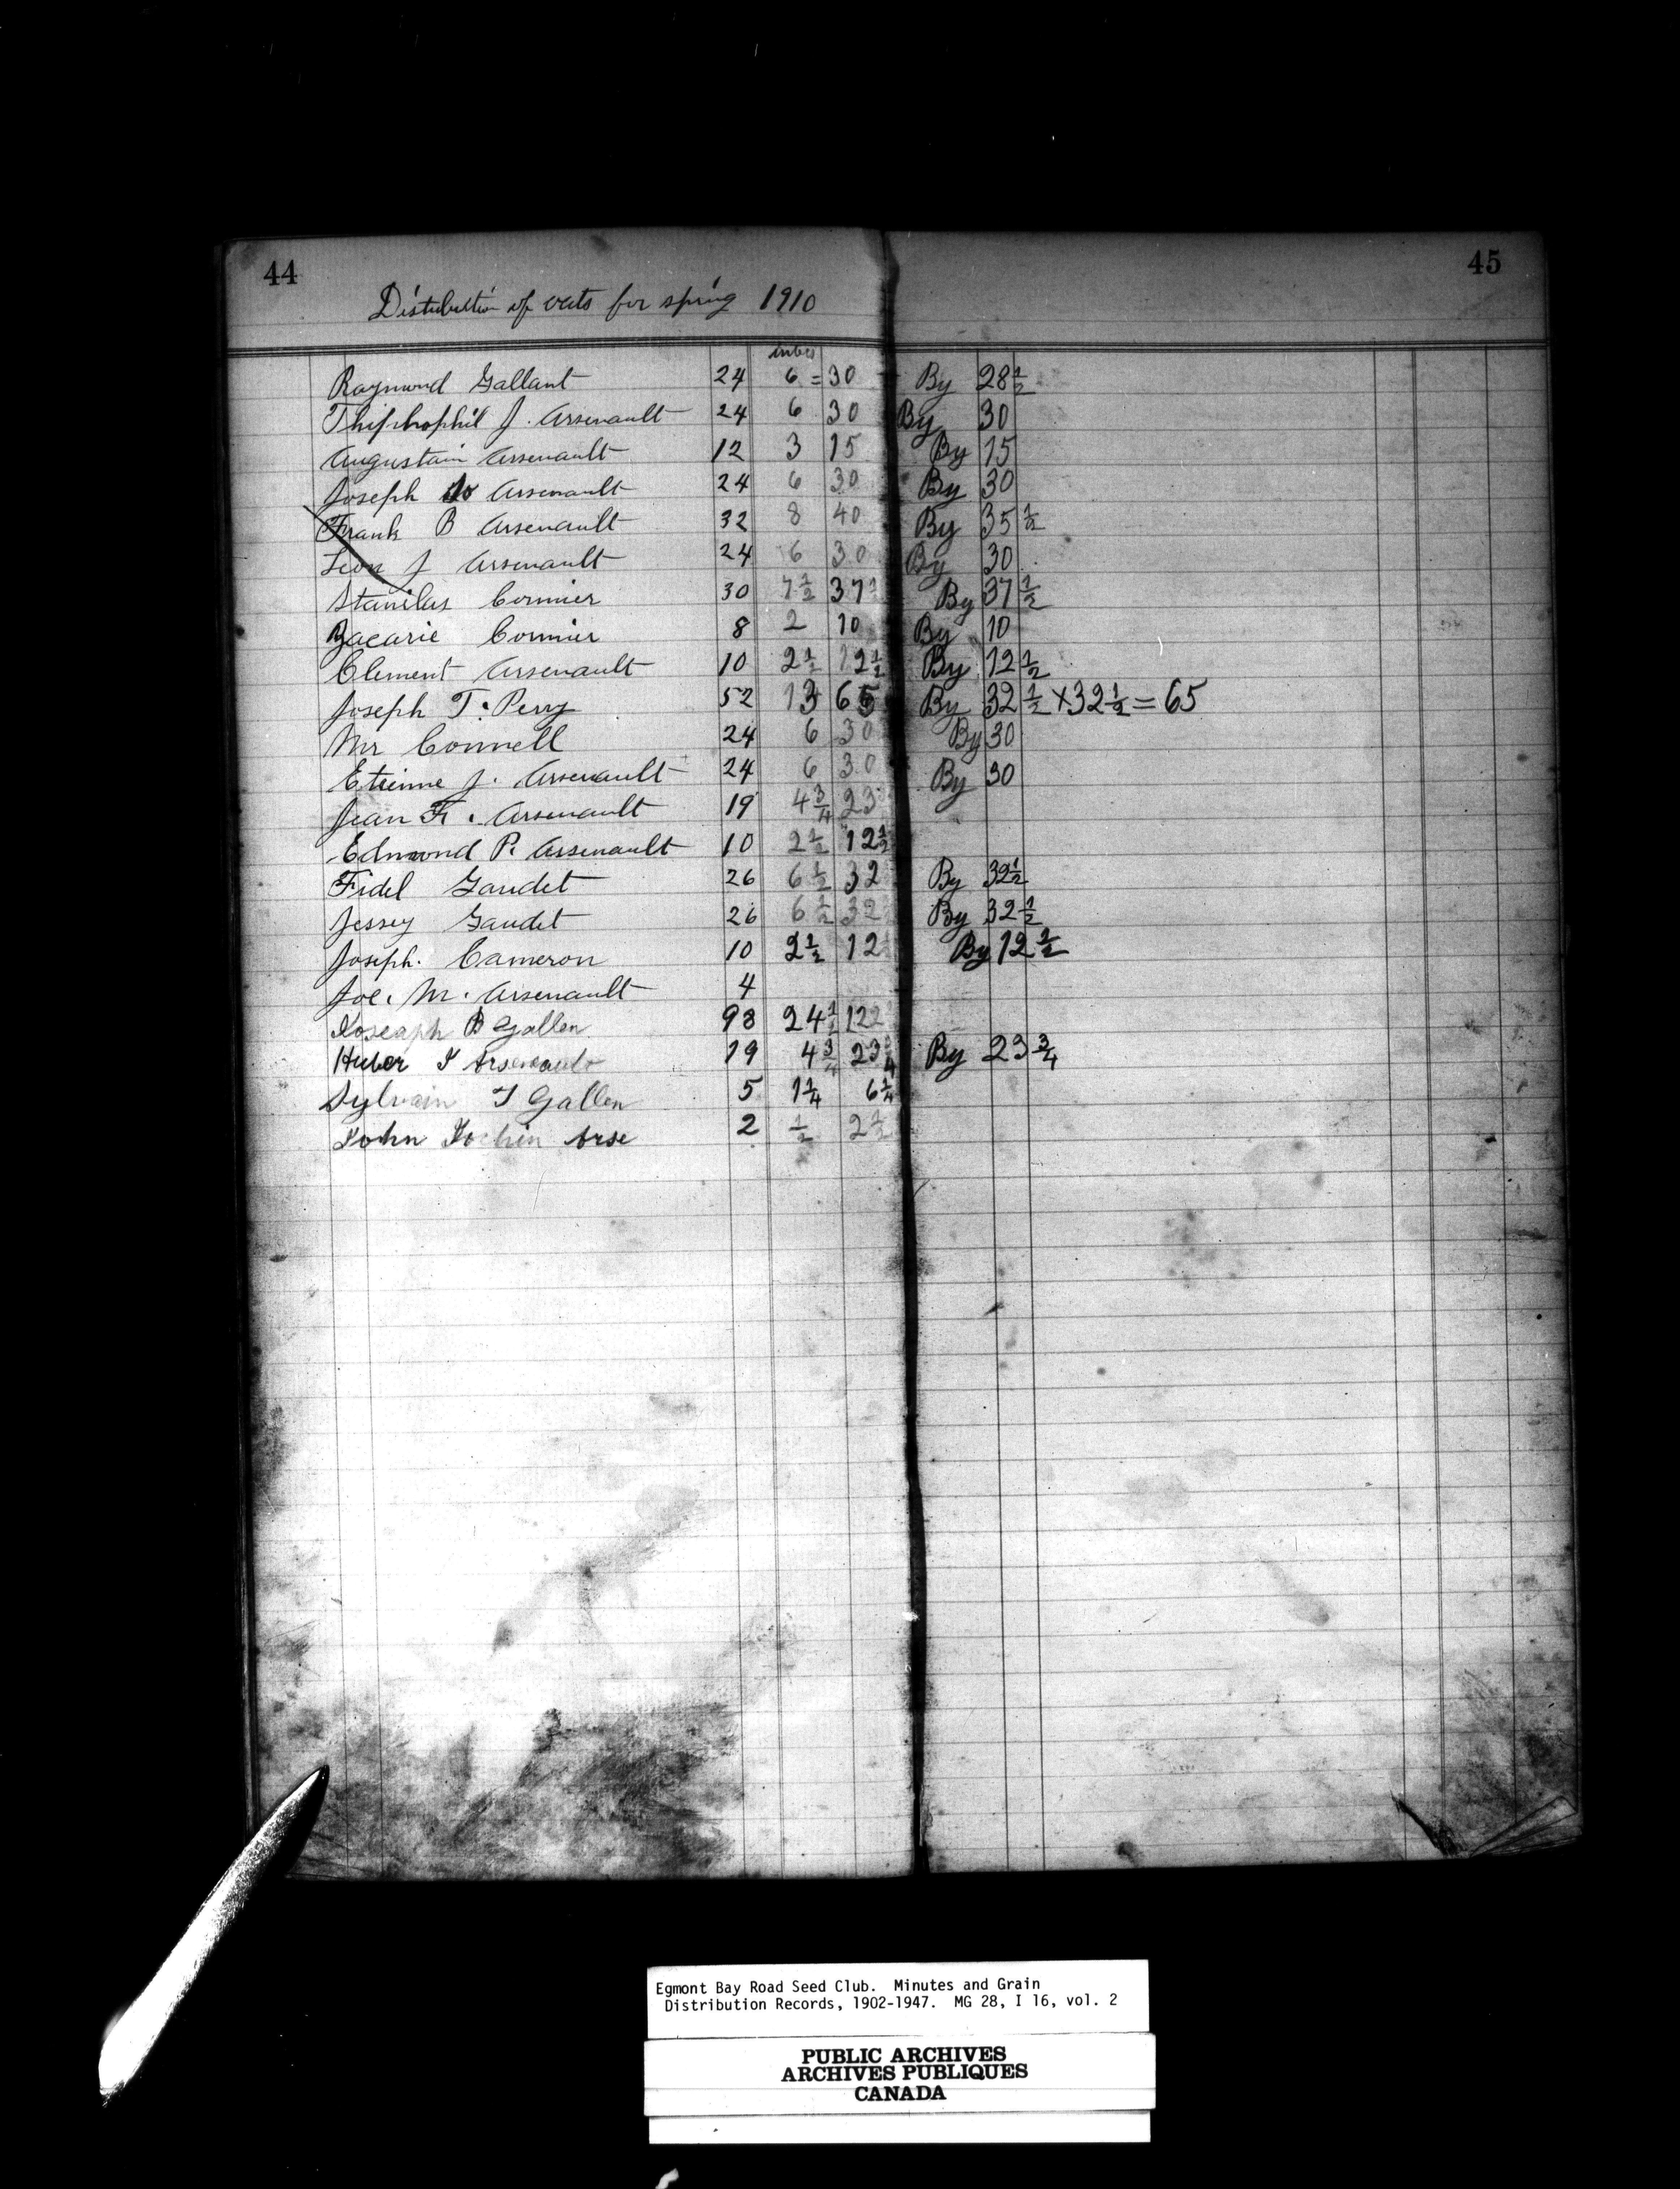 44
45
Distribution of oats for spring 1910
Raymond Gallant 24 6 = 30 By 28 1/2
Thiphophil J. Arsenault 24 6 30 By 30
Augustain Arsenault 12 3 15 By 15
Joseph Arsenault 24 6 30 By 30
Frank B Arsenault 32 8 40 By 35 1/2
Leon J Arsenault 24 6 30 By 30
Stanilas Cormier 30 7 1/2 37 1/2 By 37 1/2
Zacarie Cormier 8 2 10 By 10
Clement Arsenault 10 2 1/2 12 1/2 By 12 1/2
Joseph T. Perry 52 13 65 By 32 1/2 x 32 1/2 = 65
Mr Connell 24 6 30 By 30
Etienne J. Arsenault 24 6 30 By 30
Jean F. Arsenault 19 4 3/4 23
Edmond P. Arsenault 10 2 1/2 12 1/2
Fidel Gaudet 26 6 1/2 32 By 32 1/2
Jessey Gaudet 26 6 1/2 32 By 32 1/2
Joseph. Cameron 10 2 1/2 12 By 12 1/2
Joe. M. Arsenault 4
Joseaph B Gallen 98 24 1/2 122
Huber J Arseneault 19 4 3/4 23 3/4 By 23 3/4
Sylvain J Gallen 5 1 1/4 6 1/4
John Jochin Arse 2 1/2 2 1/2
Egmont Bay Road Seed Club. Minutes and Grain
Distribution Records, 1902-1947. MG 28, I 16, vol. 2
PUBLIC ARCHIVES
ARCHIVES PUBLIQUES
CANADA